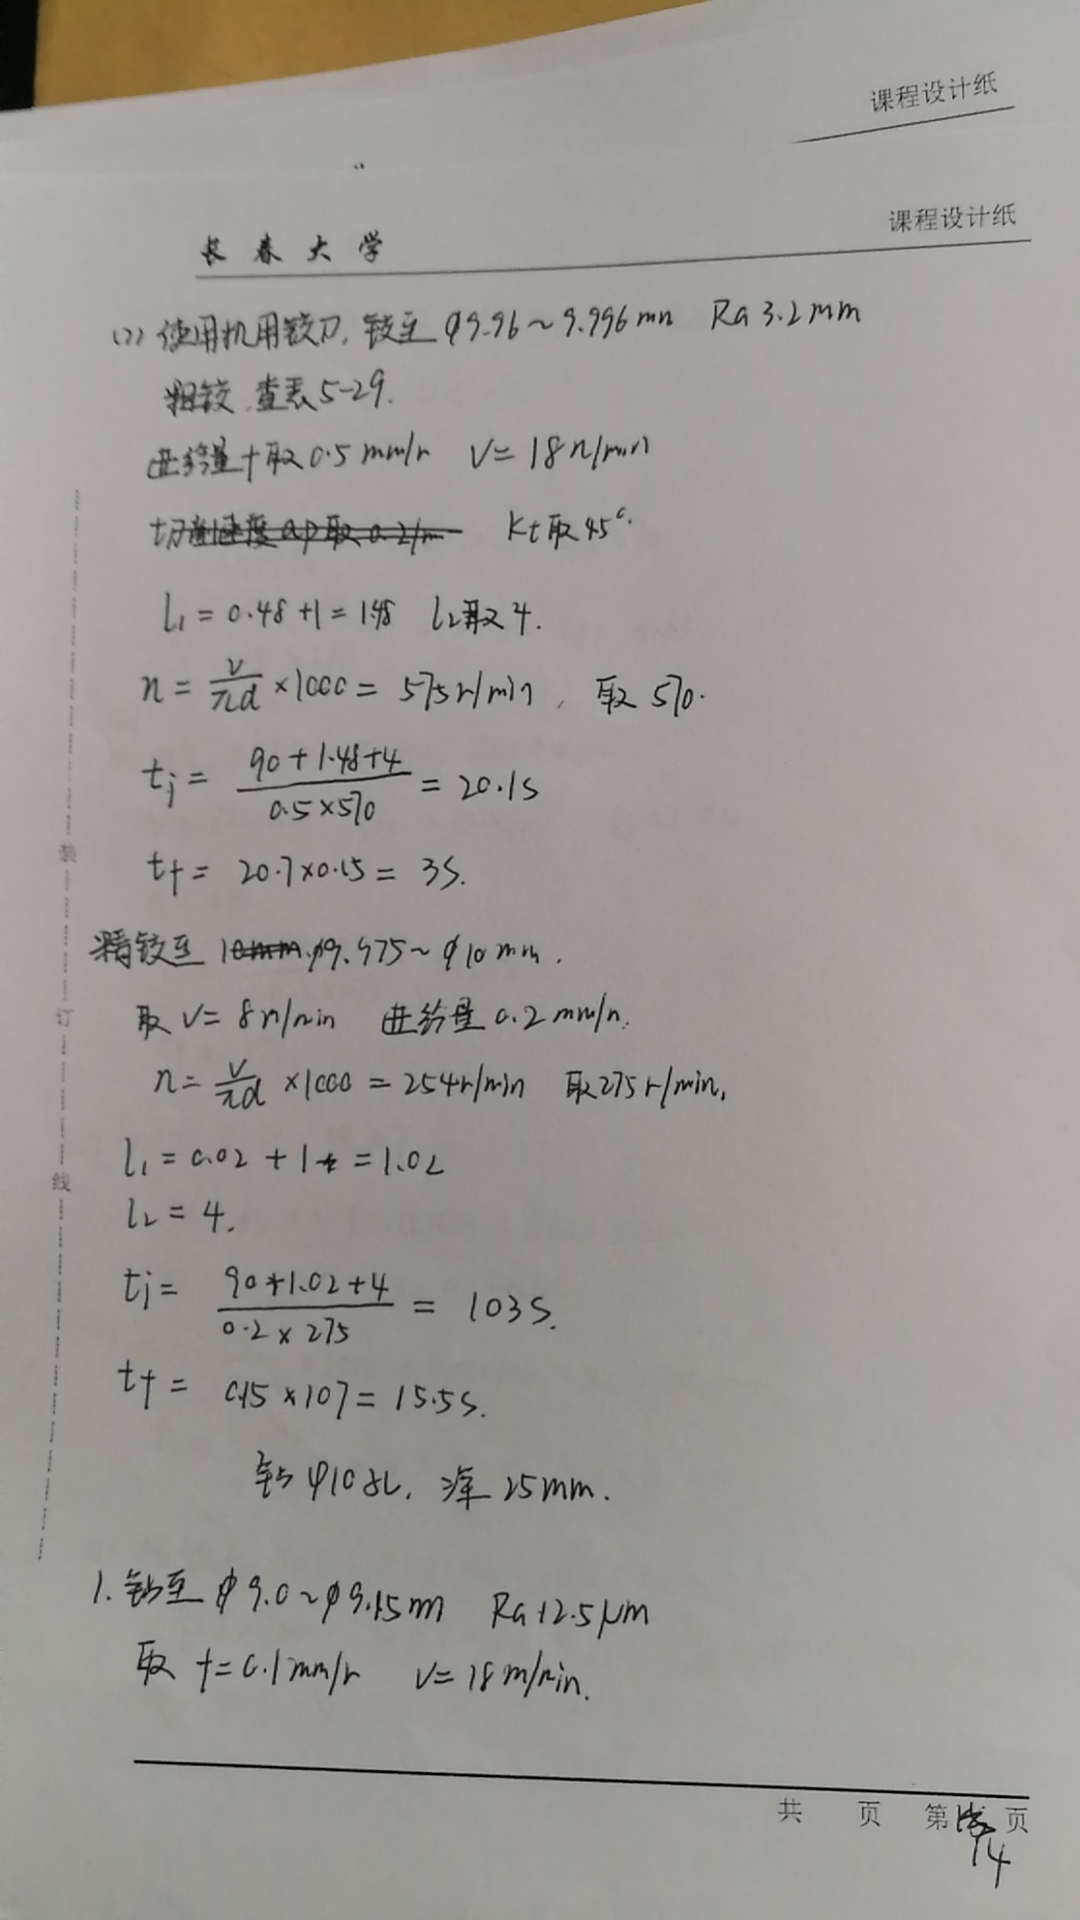 课程设计纸
课程设计纸
长春大学
(2) 使用机用铰刀, 铰至 φ9.96~9.996mm Ra3.2mm
粗铰, 查表5-29.
进给量f取0.5mm/r V=18m/min
切削速度ap取0.2/m kt取45°.
l₁=0.48+1=1.48 l₂取4.
n=V/πd×1000=575r/min, 取570.
tj=(90+1.48+4)/(0.5×570)=20.1s
tf=20.7×0.15=3s.
精铰至10mm.φ9.975~φ10mm.
取V=8m/min 进给量0.2mm/r.
n=V/πd×1000=254r/min 取275r/min.
l₁=0.02+1=1.02
l₂=4.
tj=(90+1.02+4)/(0.2×275)=103s.
tf=0.15×107=15.5s.
钻φ10孔, 深25mm.
1. 钻至φ9.0~φ9.15m Ra12.5μm
取f=0.1mm/r V=18m/min.
装
订
线
共 页 第 页
14